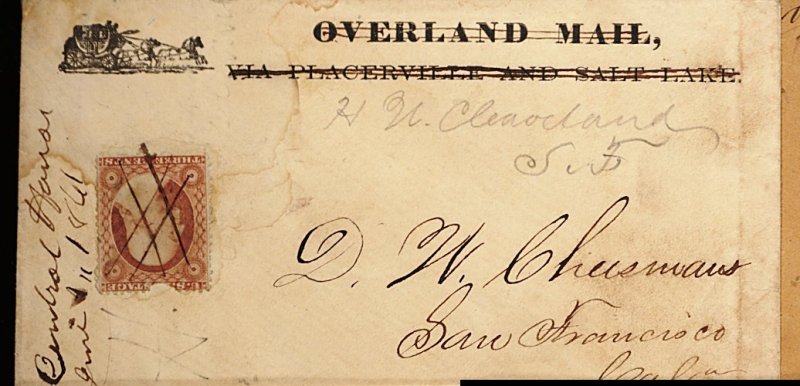 OVERLAND MAIL,
VIA PLACERVILLE AND SALT LAKE.
H W. Cleaveland
S. F
D. W. Cheesman
San Francisco
Central House
1861
THREE CENTS
U.S. POSTAGE